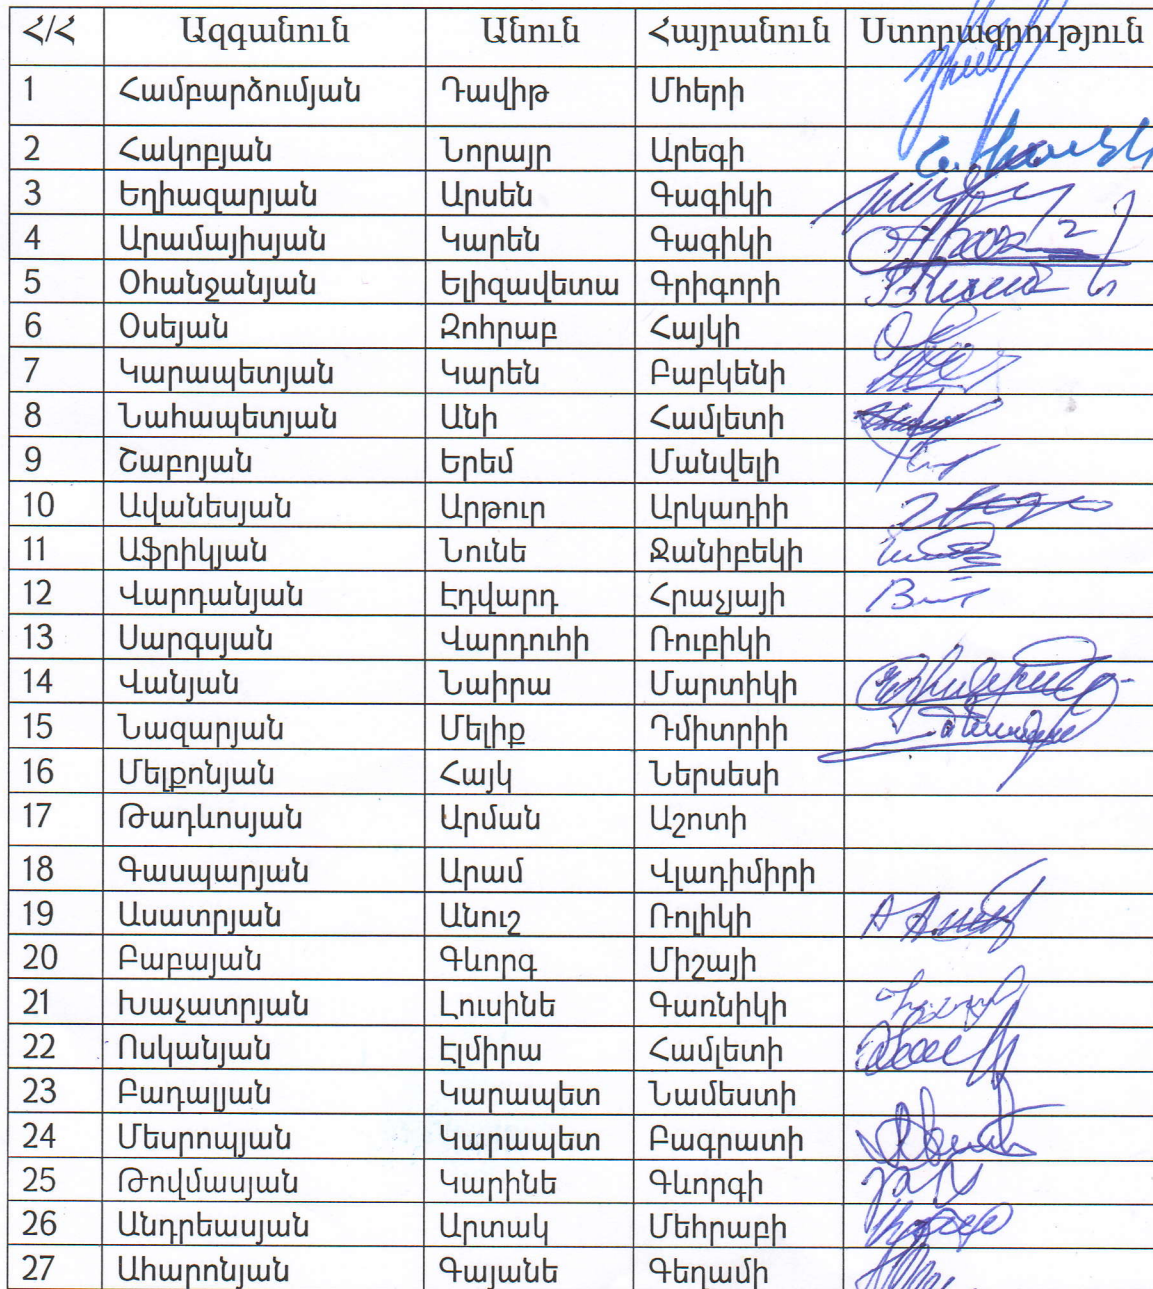 Հ/Հ Ազգանուն Անուն Հայրանուն Ստորագրություն
1 Համբարձումյան Դավիթ Մհերի
2 Հակոբյան Նորայր Արեգի
3 Եղիազարյան Արսեն Գագիկի
4 Արամայիսյան Կարեն Գագիկի
5 Օհանջանյան Ելիզավետա Գրիգորի
6 Օսեյան Զոհրաբ Հայկի
7 Կարապետյան Կարեն Բաբկենի
8 Նահապետյան Անի Համլետի
9 Շաբոյան Երեմ Մանվելի
10 Ավանեսյան Արթուր Արկադիի
11 Աֆրիկյան Նունե Ջանիբեկի
12 Վարդանյան Էդվարդ Հրաչյայի
13 Սարգսյան Վարդուհի Ռուբիկի
14 Վանյան Նաիրա Մարտիկի
15 Նազարյան Մելիք Դմիտրիի
16 Մելքոնյան Հայկ Ներսեսի
17 Թադևոսյան Արման Աշոտի
18 Գասպարյան Արամ Վլադիմիրի
19 Ասատրյան Անուշ Ռոլիկի
20 Բաբայան Գևորգ Միշայի
21 Խաչատրյան Լուսինե Գառնիկի
22 Ոսկանյան Էլմիրա Համլետի
23 Բադալյան Կարապետ Նամեստի
24 Մեսրոպյան Կարապետ Բագրատի
25 Թովմասյան Կարինե Գևորգի
26 Անդրեասյան Արտակ Մեհրաբի
27 Ահարոնյան Գայանե Գեղամի